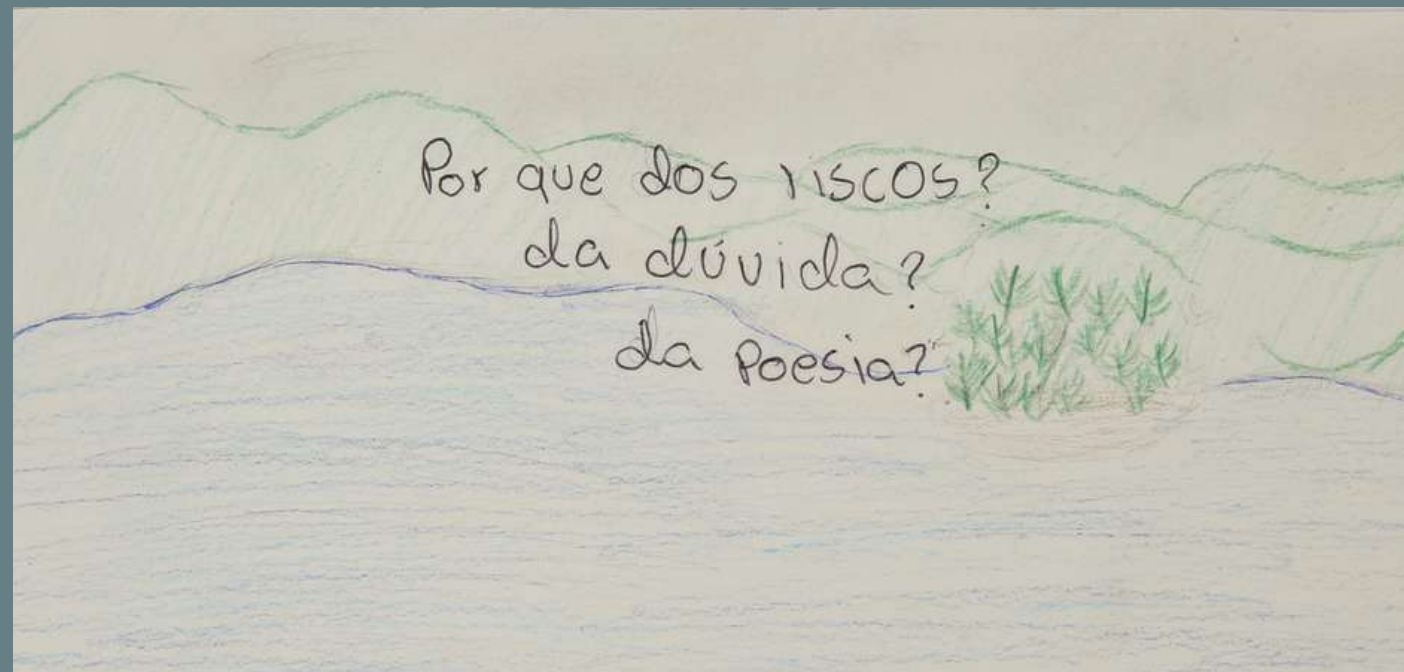 Por que dos riscos?
da dúvida?
da poesia?